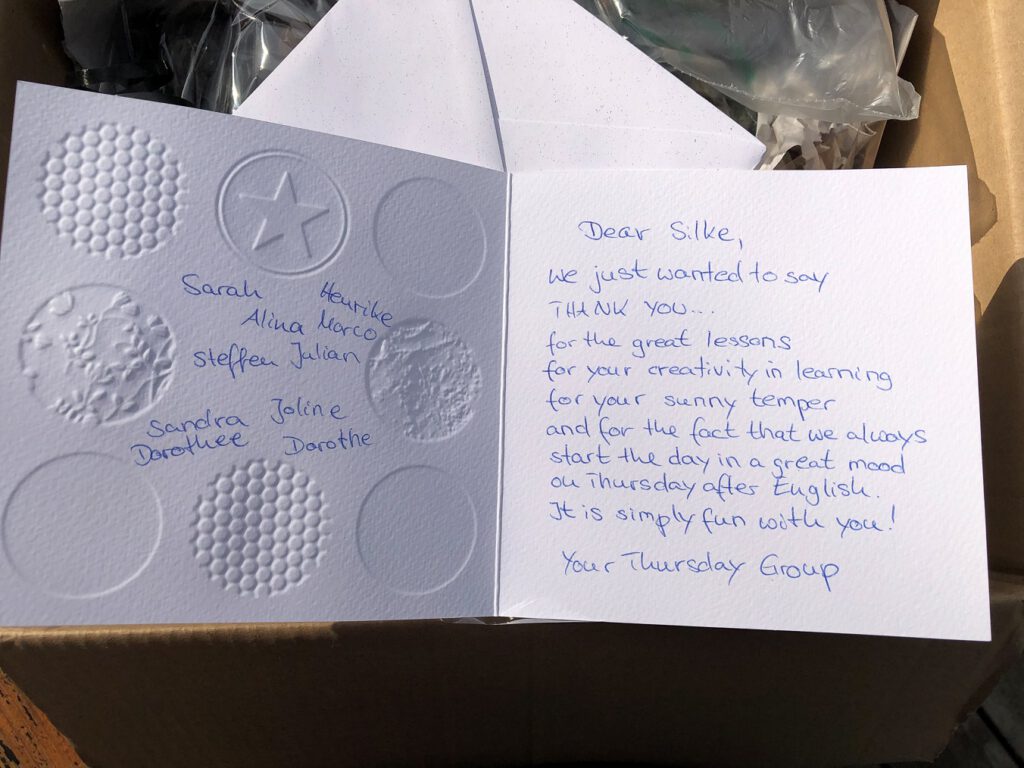 Sarah Henrike
Alina Marco
Steffen Julian
Sandra Joline
Dorothee Dorothe
Dear Silke,
we just wanted to say
THANK YOU...
for the great lessons
for your creativity in learning
for your sunny temper
and for the fact that we always
start the day in a great mood
on Thursday after English.
It is simply fun with you!
Your Thursday Group